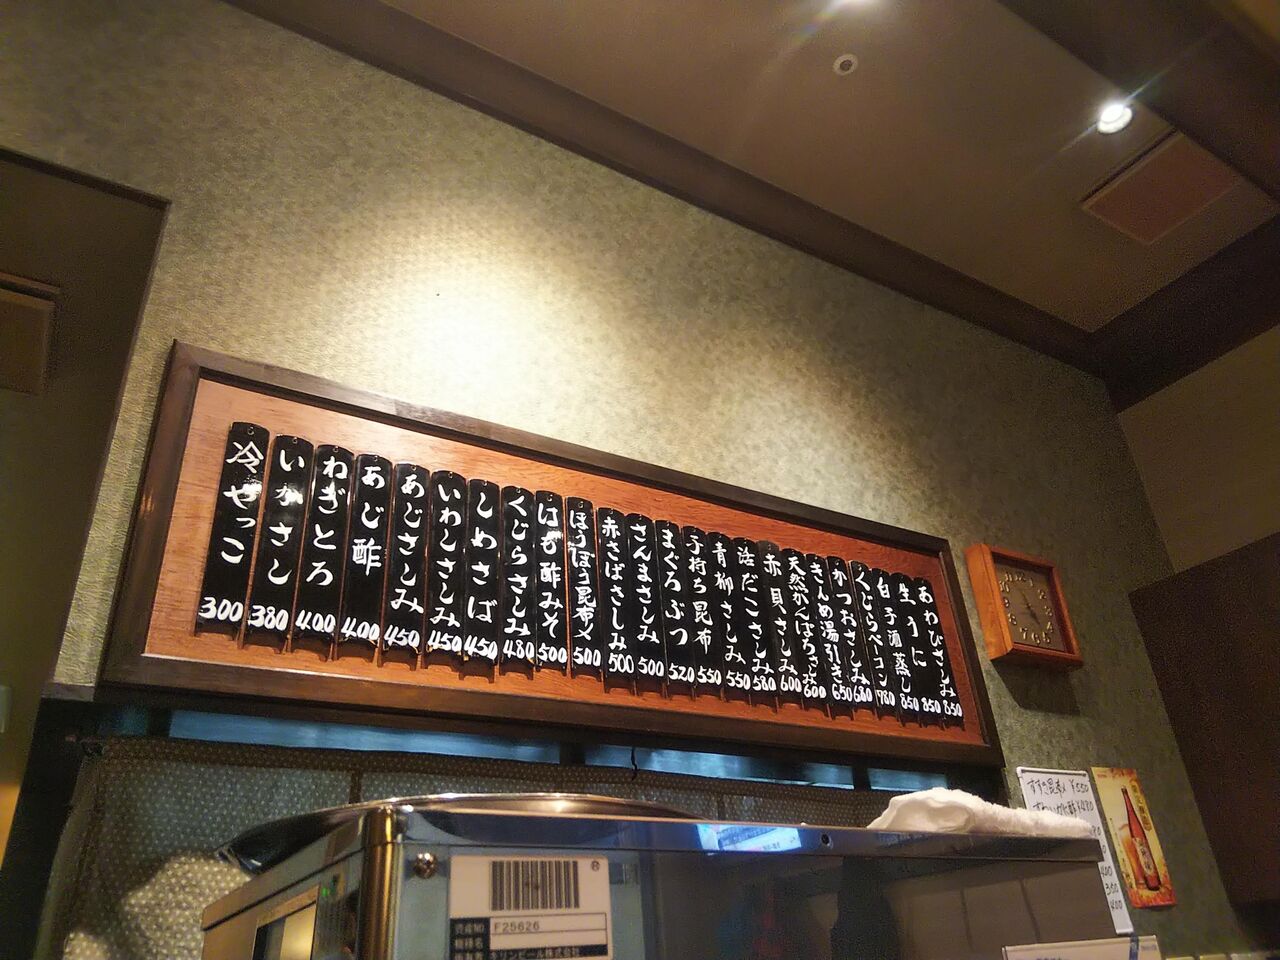 冷やっこ 300
いかさし 380
ねぎとろ 400
あじ酢 400
あじさしみ 450
いわしさしみ 450
しめさば 450
くじらさしみ 480
はも酢みそ 500
ほうぼう昆布〆 500
赤さばさしみ 500
さんまさしみ 500
まぐろぶつ 520
子持ち昆布 550
青柳さしみ 550
活だこさしみ 580
赤貝さしみ 600
天然かんぱちさしみ 600
きんめ湯引き 650
かつおさしみ 680
くじらベーコン 780
白子酒蒸し 850
生うに 850
あわびさしみ 850
資産NO F25626
機種名
キリンビール株式会社
¥550